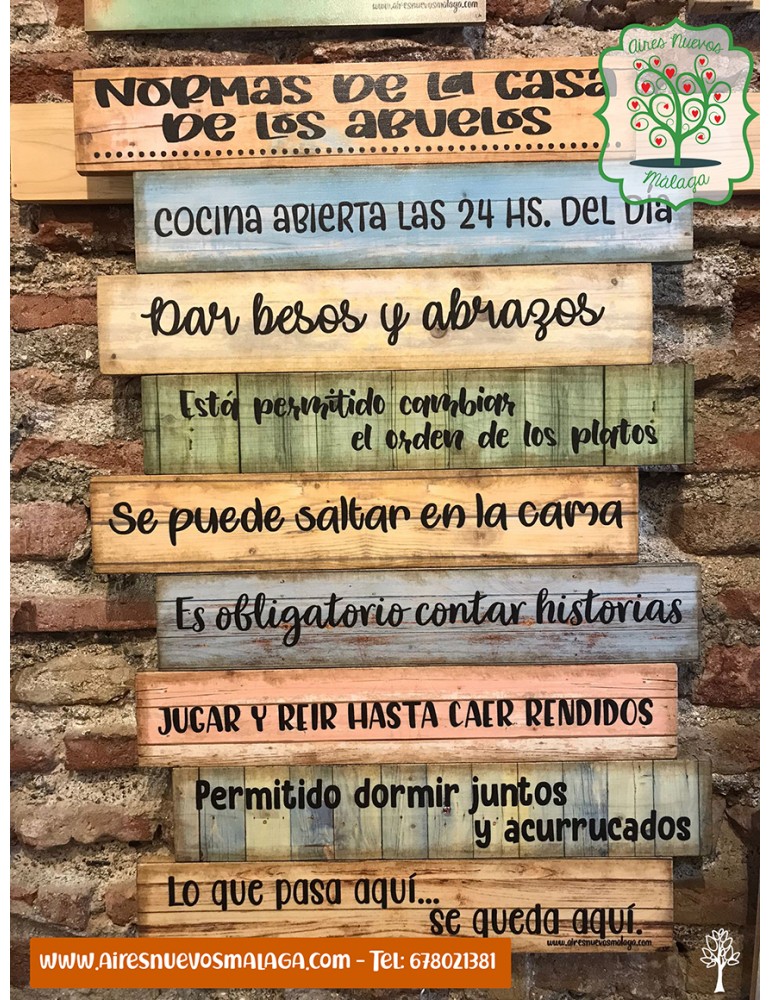 www.airesnuevosmalaga.com
Aires Nuevos
Málaga
NORMAS DE LA CASA
DE LOS ABUELOS
COCINA ABIERTA LAS 24 HS. DEL DÍA
Dar besos y abrazos
Está permitido cambiar
el orden de los platos
Se puede saltar en la cama
Es obligatorio contar historias
JUGAR Y REIR HASTA CAER RENDIDOS
Permitido dormir juntos
y acurrucados
Lo que pasa aquí...
se queda aquí.
www.airesnuevosmalaga.com
www.AIRESNUEVOSMALAGA.com - TEL: 678021381